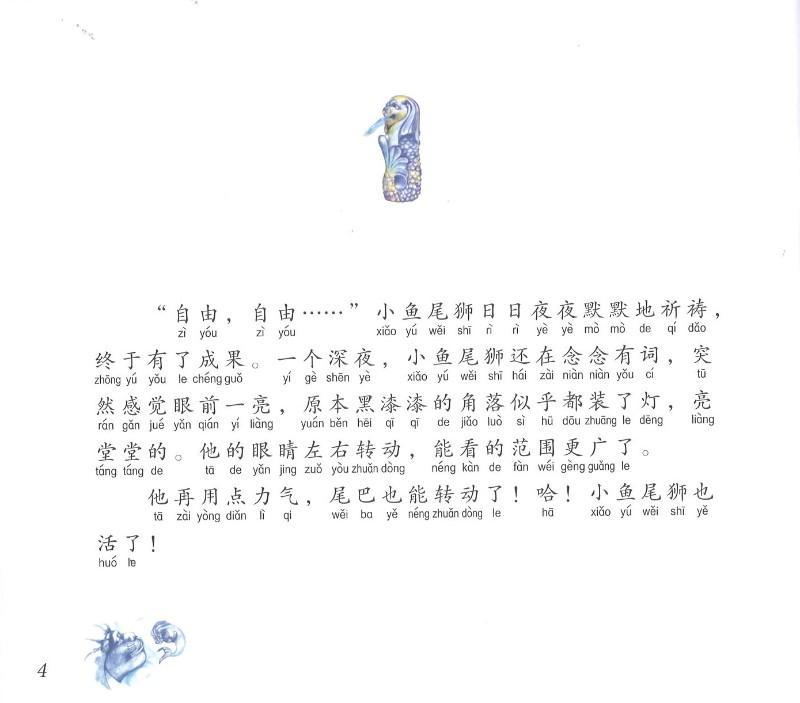 “自由，自由……”小鱼尾狮日日夜夜默默地祈祷，
zì yóu zì yóu xiǎo yú wěi shī rì rì yè yè mò mò de qí dǎo
终于有了成果。一个深夜，小鱼尾狮还在念念有词，突
zhōng yú yǒu le chéng guǒ yí gè shēn yè xiǎo yú wěi shī hái zài niàn niàn yǒu cí tū
然感觉眼前一亮，原本黑漆漆的角落似乎都装了灯，亮
rán gǎn jué yǎn qián yí liàng yuán běn hēi qī qī de jiǎo luò sì hū dōu zhuāng le dēng liàng
堂堂的。他的眼睛左右转动，能看的范围更广了。
táng táng de tā de yǎn jing zuǒ yòu zhuǎn dòng néng kàn de fàn wéi gèng guǎng le
他再用点力气，尾巴也能转动了！哈！小鱼尾狮也
tā zài yòng diǎn lì qi wěi ba yě néng zhuǎn dòng le hā xiǎo yú wěi shī yě
活了！
huó le
4